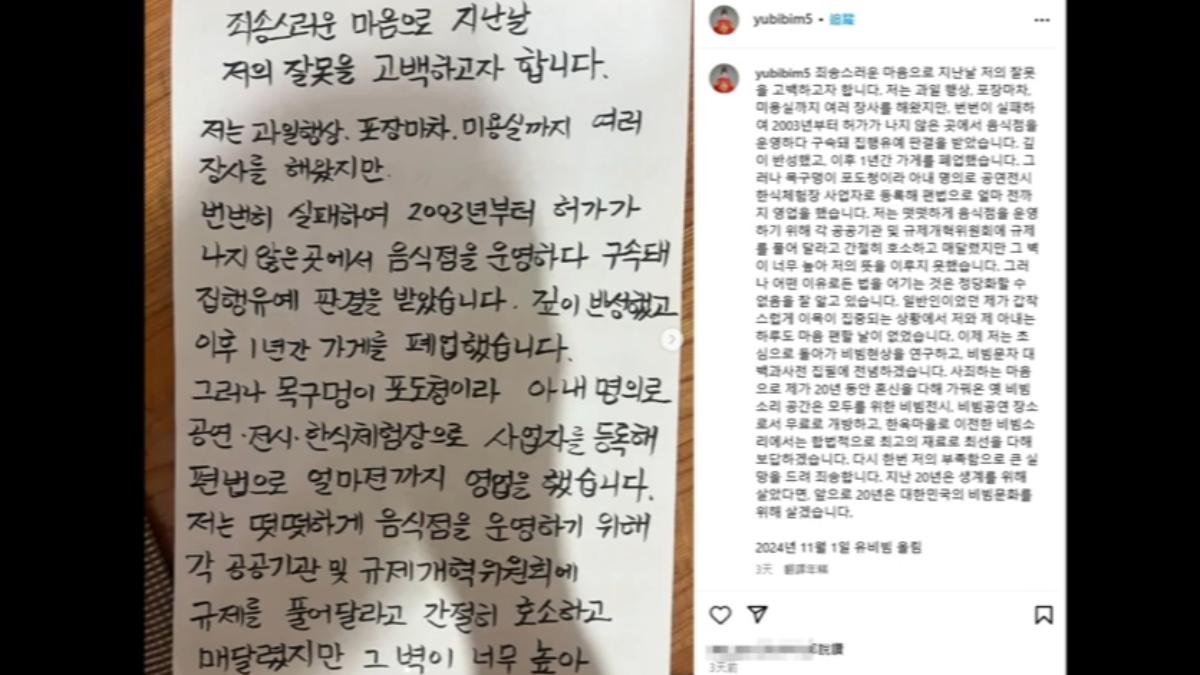 죄송스러운 마음으로 지난날
저의 잘못을 고백하고자 합니다.
저는 과일행상. 포장마차. 미용실까지 여러
장사를 해왔지만.
번번히 실패하여 2003년부터 허가가
나지 않은 곳에서 음식점을 운영하다 구속돼
집행유예 판결을 받았습니다. 깊이 반성했고
이후 1년간 가게를 폐업했습니다.
그러나 목구멍이 포도청이라 아내 명의로
공연·전시·한식체험장으로 사업자를 등록해
편법으로 얼마전까지 영업을 했습니다.
저는 떳떳하게 음식점을 운영하기 위해
각 공공기관 및 규제개혁위원회에
규제를 풀어달라고 간절히 호소하고
매달렸지만 그 벽이 너무 높아
yubibim5 • 追蹤
yubibim5 죄송스러운 마음으로 지난날 저의 잘못
을 고백하고자 합니다. 저는 과일 행상, 포장마차,
미용실까지 여러 장사를 해왔지만, 번번이 실패하
여 2003년부터 허가가 나지 않은 곳에서 음식점을
운영하다 구속돼 집행유예 판결을 받았습니다. 깊
이 반성했고, 이후 1년간 가게를 폐업했습니다. 그
러나 목구멍이 포도청이라 아내 명의로 공연전시
한식체험장 사업자로 등록해 편법으로 얼마 전까
지 영업을 했습니다. 저는 떳떳하게 음식점을 운영
하기 위해 각 공공기관 및 규제개혁위원회에 규제
를 풀어 달라고 간절히 호소하고 매달렸지만 그 벽
이 너무 높아 저의 뜻을 이루지 못했습니다. 그러
나 어떤 이유로든 법을 어기는 것은 정당화할 수
없음을 잘 알고 있습니다. 일반인이었던 제가 갑작
스럽게 이목이 집중되는 상황에서 저와 제 아내는
하루도 마음 편할 날이 없었습니다. 이제 저는 초
심으로 돌아가 비빔현상을 연구하고, 비빔문자 대
백과사전 집필에 전념하겠습니다. 사죄하는 마음
으로 제가 20년 동안 혼신을 다해 가꿔온 옛 비빔
소리 공간은 모두를 위한 비빔전시, 비빔공연 장소
로서 무료로 개방하고, 한옥마을로 이전한 비빔소
리에서는 합법적으로 최고의 재료로 최선을 다해
보답하겠습니다. 다시 한번 저의 부족함으로 큰 실
망을 드려 죄송합니다. 지난 20년은 생계를 위해
살았다면, 앞으로 20년은 대한민국의 비빔문화를
위해 살겠습니다.
2024년 11월 1일 유비빔 올림
3天 翻譯年糕
都說讚
3天前